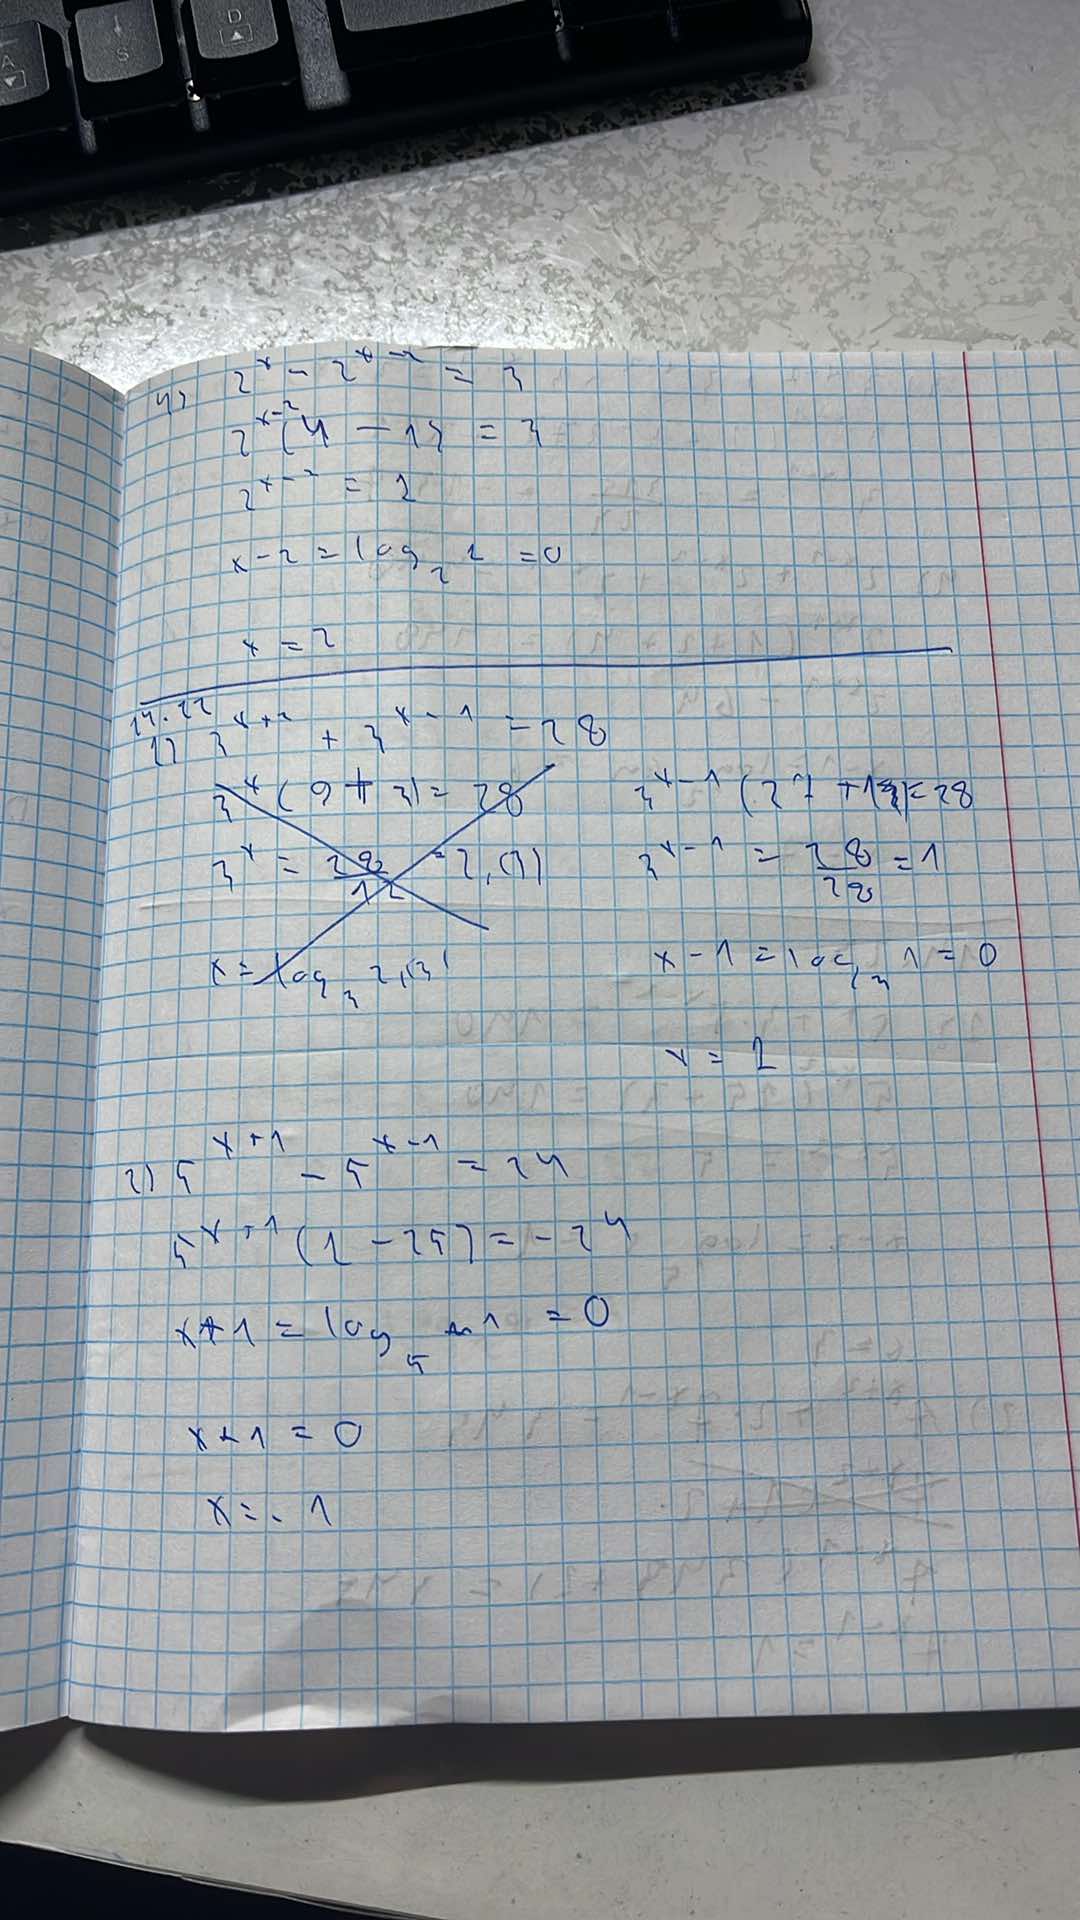 A
S
D
4) 2^x - 2^{x-2} = 3
2^{x-2}(4 - 1) = 3
2^{x-2} = 1
x - 2 = log_2 1 = 0
x = 2
14.22
1) 3^{x+2} + 3^{x-1} = 28
3^x (9 + 3) = 28
3^x = 28/12 = 2,(3)
x = log_3 2,(3)
3^{x-1} (27 + 1) = 28
3^{x-1} = 28/28 = 1
x - 1 = log_3 1 = 0
x = 1
2) 5^{x+1} - 5^{x-1} = 24
5^{x+1} (1 - 25) = -24
x + 1 = log_5 1 = 0
x + 1 = 0
x = - 1